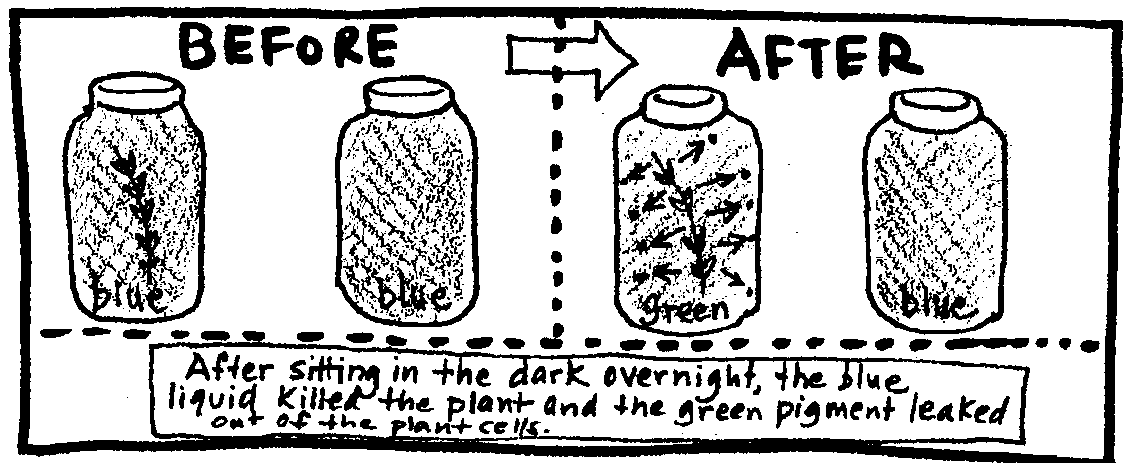 BEFORE
AFTER
blue
blue
green
blue
After sitting in the dark overnight, the blue
liquid killed the plant and the green pigment leaked
out of the plant cells.